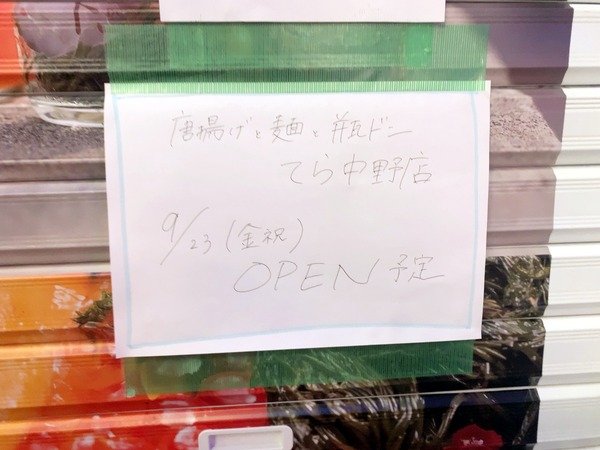 唐揚げと麺と瓶ドン
てら中野店
9/23(金祝)
OPEN予定